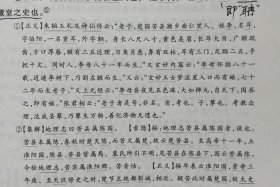 藏室之史也。①
①【正义】朱韬玉札及神仙传云：“老子，楚国苦县濑乡曲仁里人。姓李，名耳，
字伯阳，一名重耳，外字聃。身长八尺八寸，黄色美眉，长耳大目，广额疏
齿，方口厚唇，
日月角悬，鼻有双柱，耳有三门，足蹈二五，手
把十文。周时人，李母八十一年而生。”又玄妙内篇云：“李母怀胎八十一
载，逍遥李树下，乃割左腋而生。”又云：“玄妙玉女梦流星入口而有娠，七十二
年而生老子。”又上元经云：“李母昼夜见五色珠，大如弹丸，自天下，因吞
之，即有娠。”张君相云：“老子者是号，非名。老，考也。子，孳也。考教众理，
达成圣孳，乃孳生万物，善化济物无遗也。”
②【集解】地理志曰苦县属陈国。【索隐】按：地理志苦县属陈国者，误也。
苦县本属陈，春秋时楚灭陈，而苦又属楚，故云楚苦县。至高帝十一年，立
淮阳国，陈县、苦县皆属焉。裴氏所引不明，见苦县在陈县下，因云苦属陈。
今检地理志，苦实属淮阳郡。苦音怙。【正义】按年表云淮阳国，景帝三年
废。至天汉修史之时，楚节王纯都彭城，相近。疑苦此时属楚国，故太史
即聃